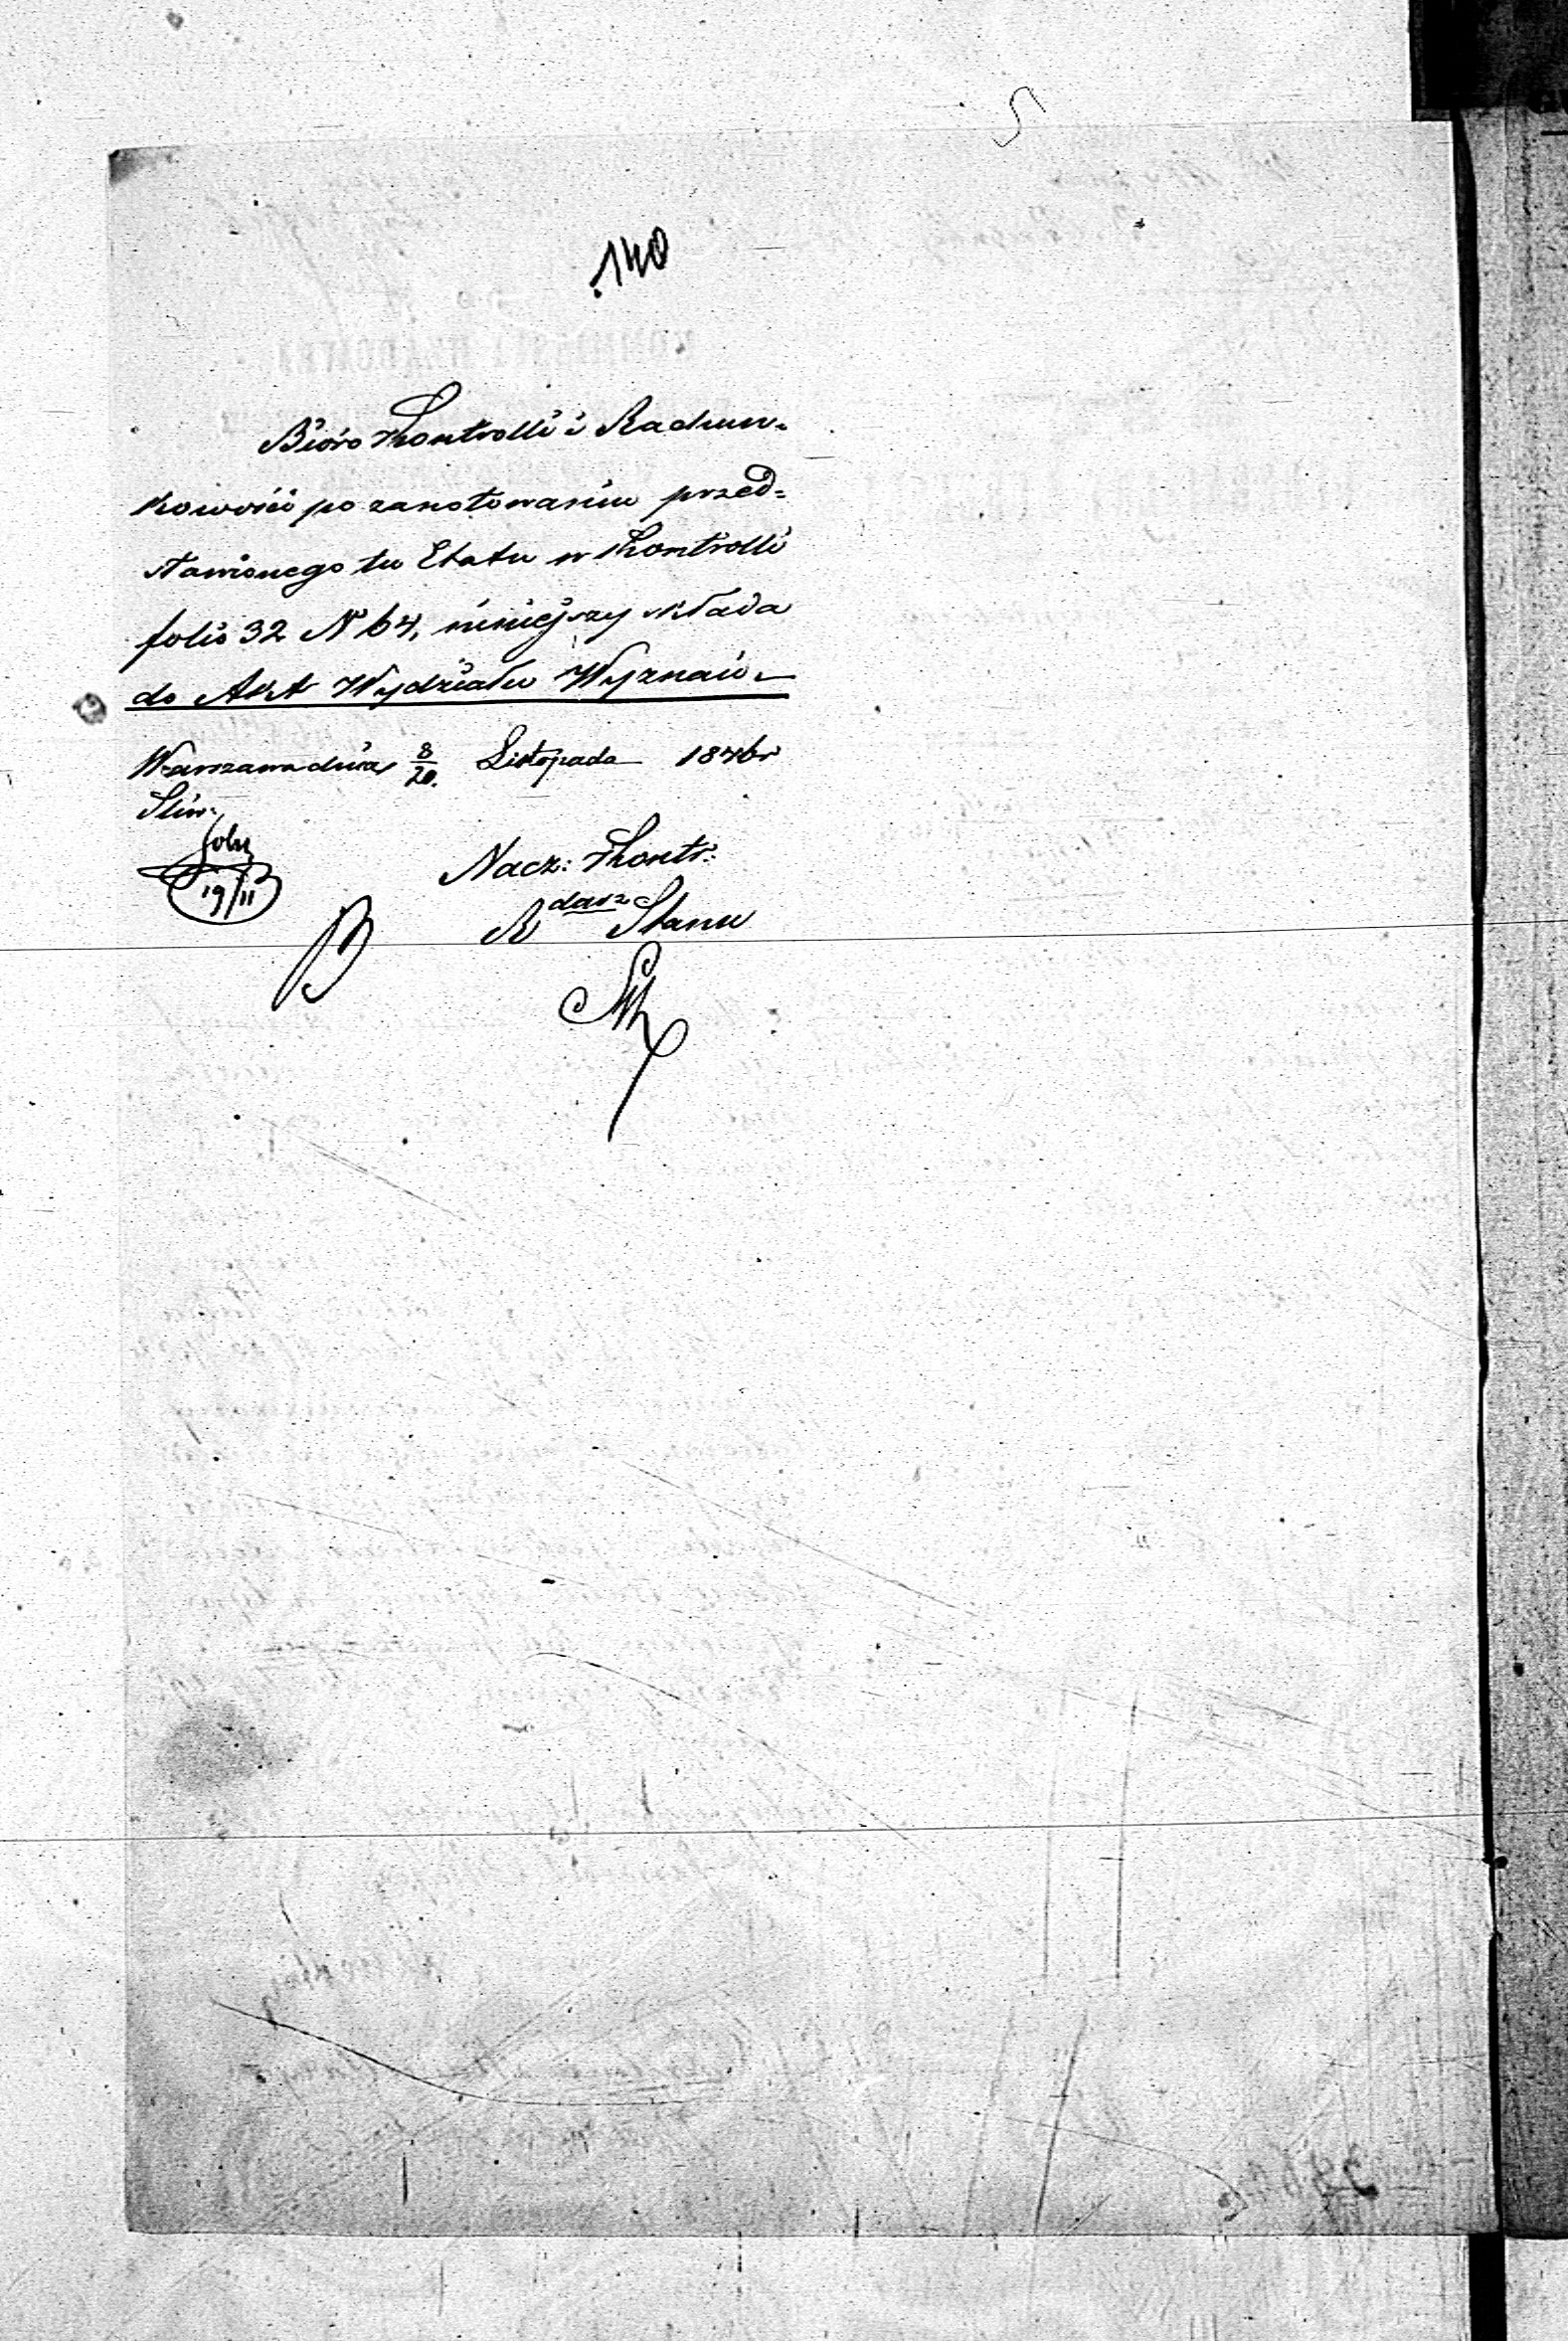 140
Bióro Kontrolli i Rachun-
kowości po zanotowaniu przed=
stawionego tu Etatu w Kontrolli
folio 32 N 64, niniejszy składa
do Akt Wydziału Wyznań
Warszawa dnia 8/20 Listopada 1846 r
19/11
Nacz: Kontr:
R dca Stanu